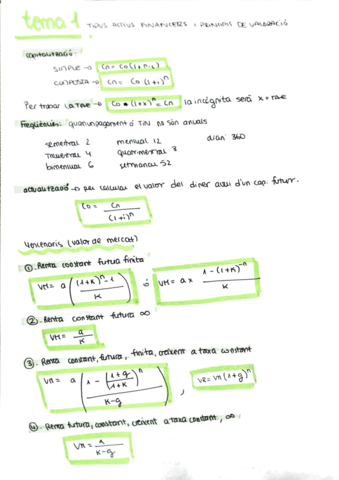 tema 1 TIPUS ACTIUS FINANCERS I PRINCIPIS DE VALORACIÓ
capitalització:
SIMPLE → Cn = Co (1+n·i)
COMPOSTA → Cn = Co (1+i)^n
Per trobar la TAE → Co · (1+x)^n = Cn la incògnita serà x = TAE
Freqüència: quan un pagament ó TIN no són anuals
semestral 2 mensual 12 diari 360
trimestral 4 quatrimestral 3
bimensual 6 setmanal 52
actualització → per calcular el valor del diner avui d'un cap. futur.
Co = Cn / (1+i)^n
(valor de mercat)
① Renta constant futura finita
VM = a ( (1+K)^n - 1 / K ) ó VM = a x 1 - (1+K)^-n / K
② Renta constant futura ∞
VM = a / K
③ Renta constant, futura, finita, creixent a taxa constant
VM = a ( 1 - ( 1+g / 1+K )^n / K-g ) ,
④ Renta futura, constant, creixent a taxa constant, ∞
VM = a / K-g